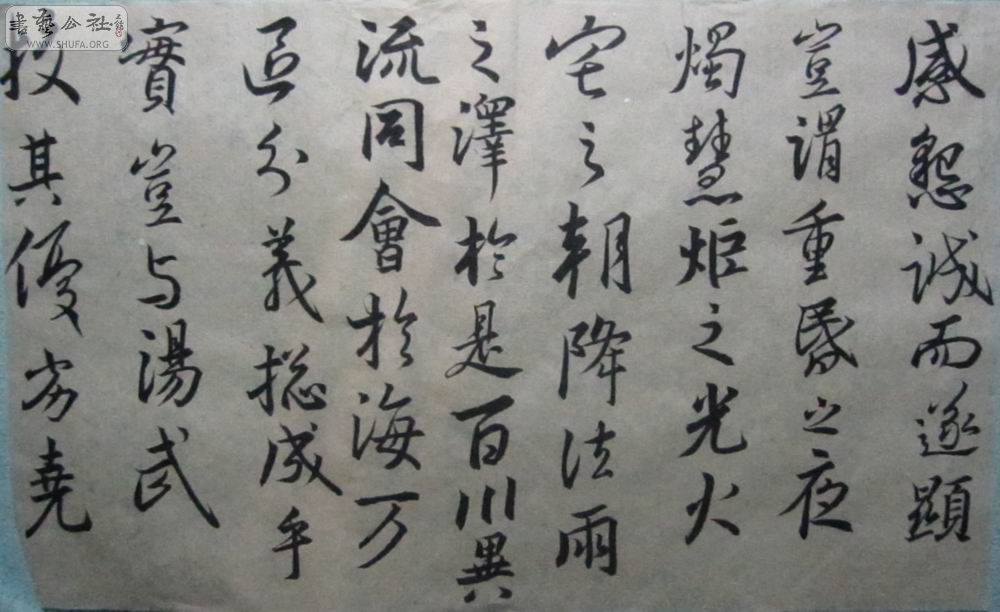 感懇誠而遂顯
豈謂重昏之夜
燭慧炬之光火
宅之朝降法雨
之澤於是百川異
流同會於海万
區分義揔成乎
實豈与湯武
挍其優劣堯
書藝公社
WWW.SHUFA.ORG